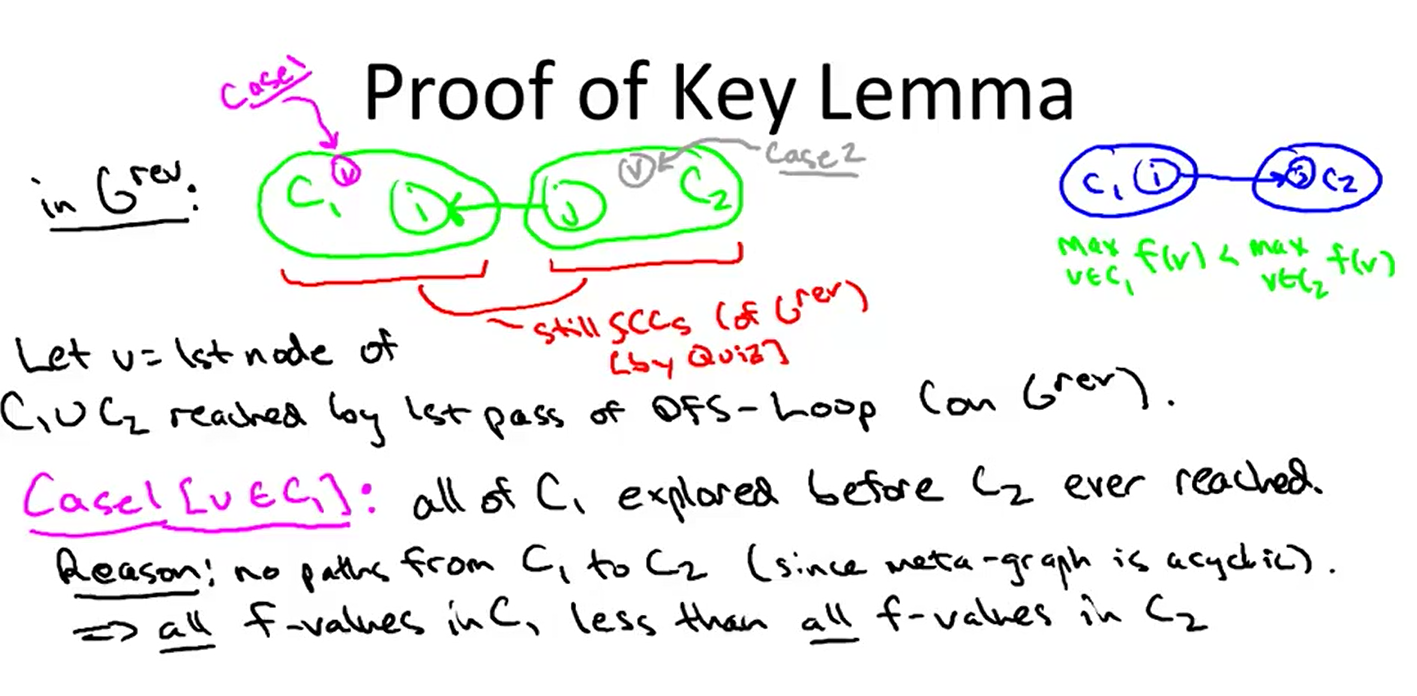 Proof of Key Lemma
Case 1
in G^rev:
C₁ v i
j v C₂
Case 2
C₁ i j C₂
max v∈C₁ f(v) < max v∈C₂ f(v)
still SCCs (of G^rev)
[by Quiz]
Let v = 1st node of
C₁ ∪ C₂ reached by 1st pass of DFS-Loop (on G^rev).
Case 1 [v ∈ C₁]: all of C₁ explored before C₂ ever reached.
Reason: no paths from C₁ to C₂ (since meta-graph is acyclic).
=> all f-values in C₁ less than all f-values in C₂